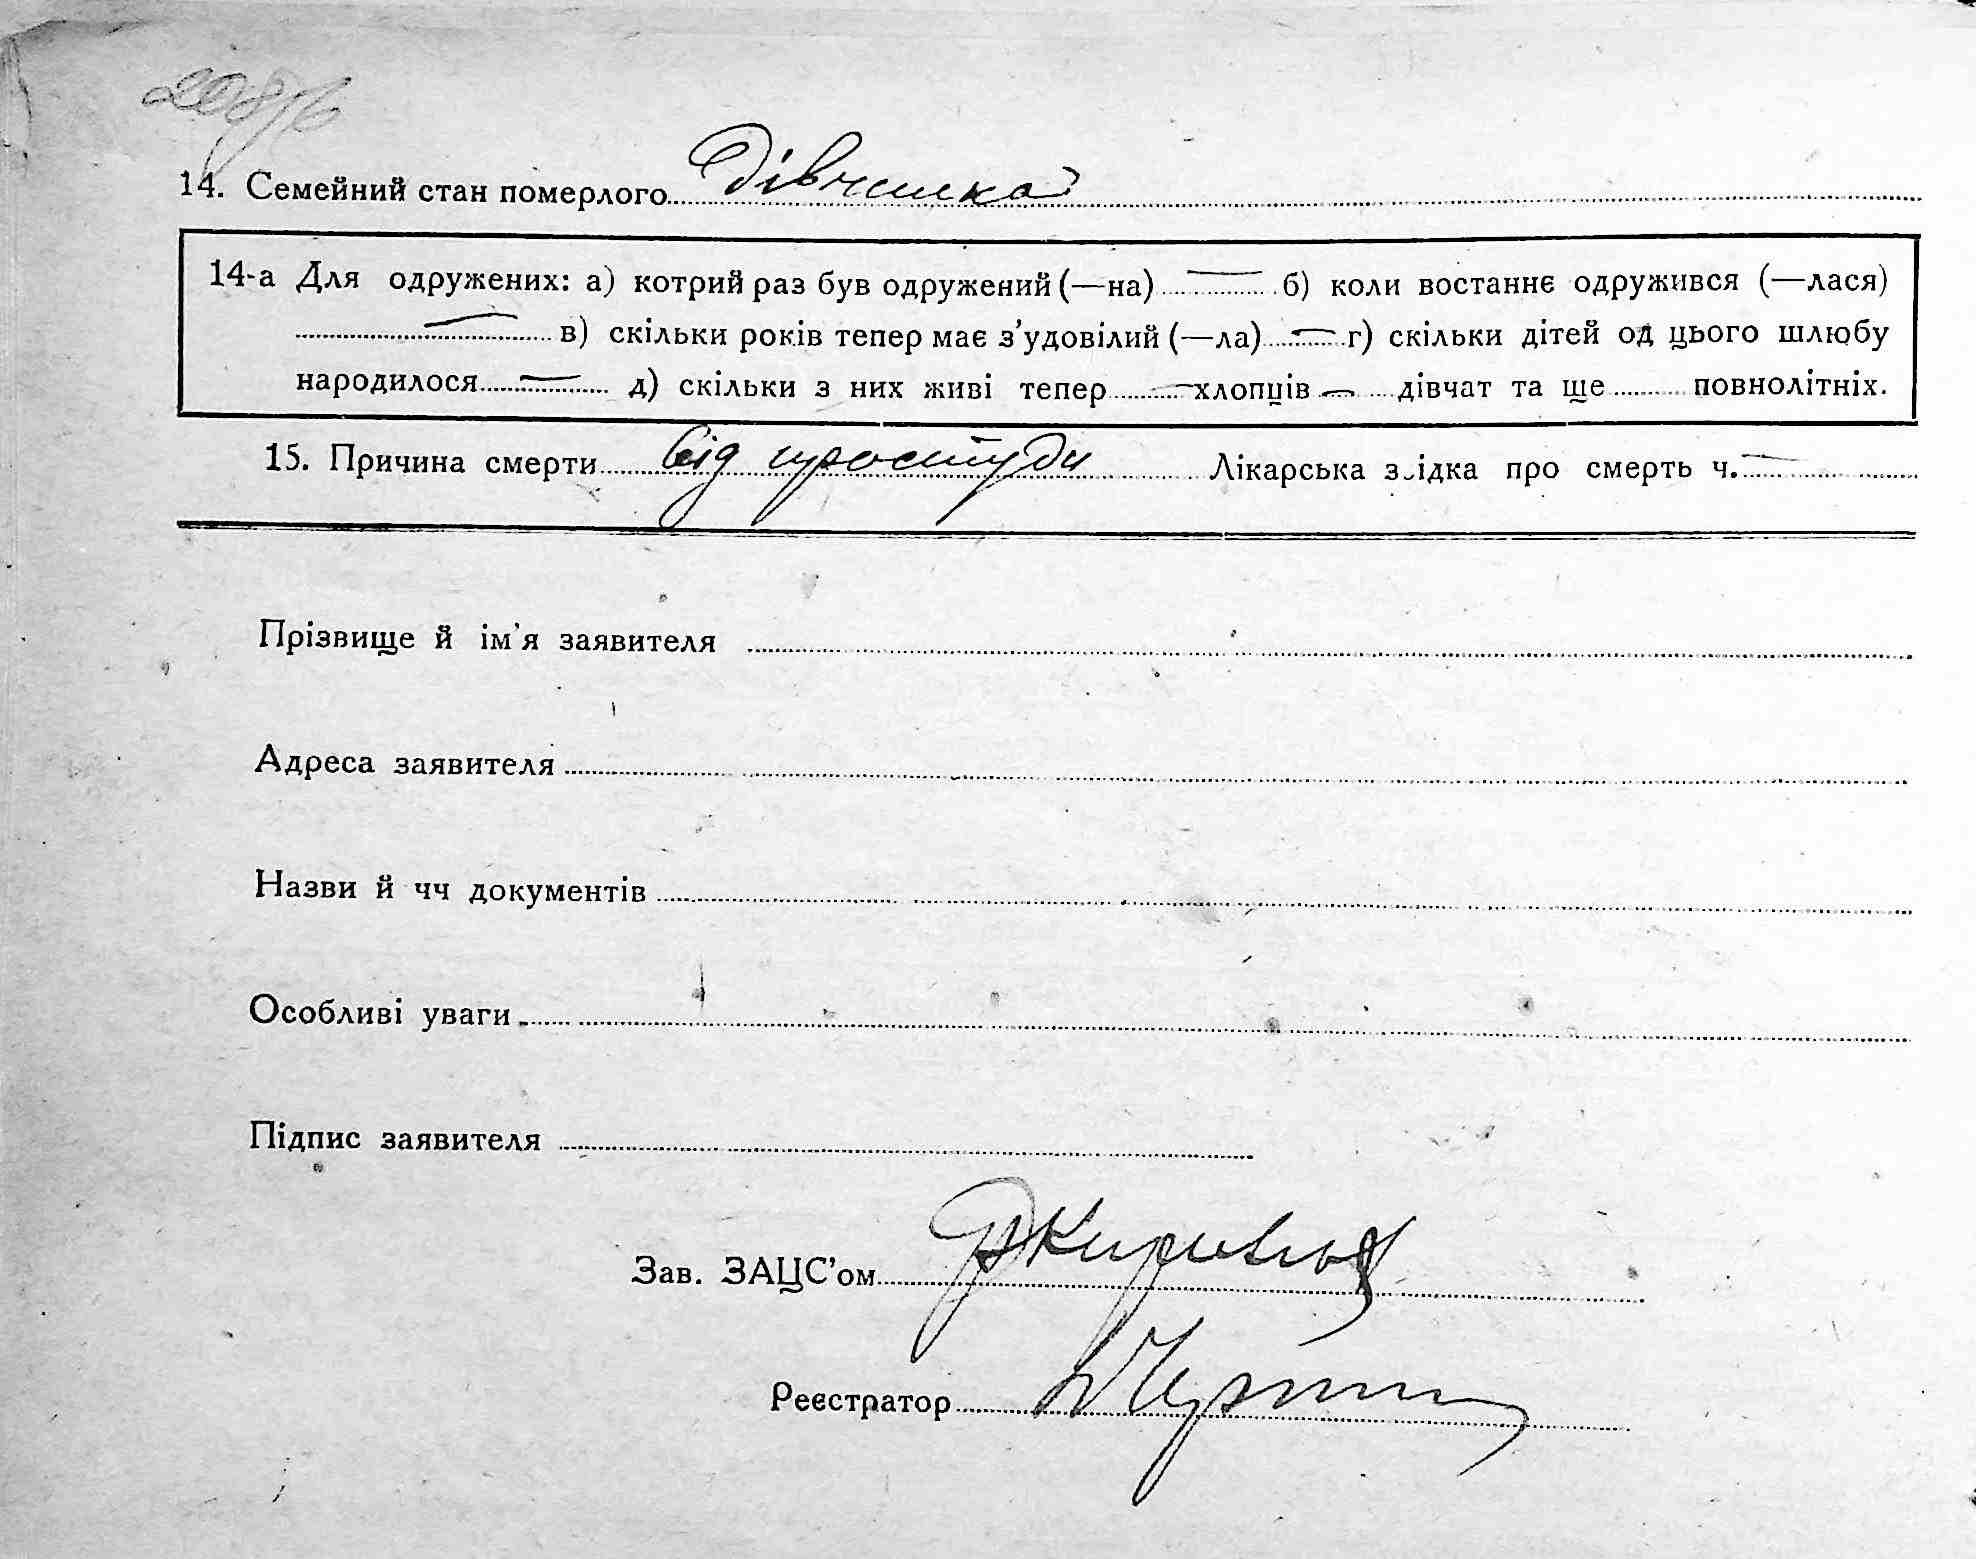 14. Семейний стан померлого Дівчинка
14-а Для одружених: а) котрий раз був одружений (—на) — б) коли востаннє одружився (—лася)
— в) скільки років тепер має з’удовілий (—ла) — г) скільки дітей од цього шлюбу
народилося — д) скільки з них живі тепер — хлопців — дівчат та ще повнолітніх.
15. Причина смерти від простуди Лікарська звідка про смерть ч. —
Прізвище й ім’я заявителя
Адреса заявителя
Назви й чч документів
Особливі уваги
Підпис заявителя
Зав. ЗАЦС’ом
Реєстратор